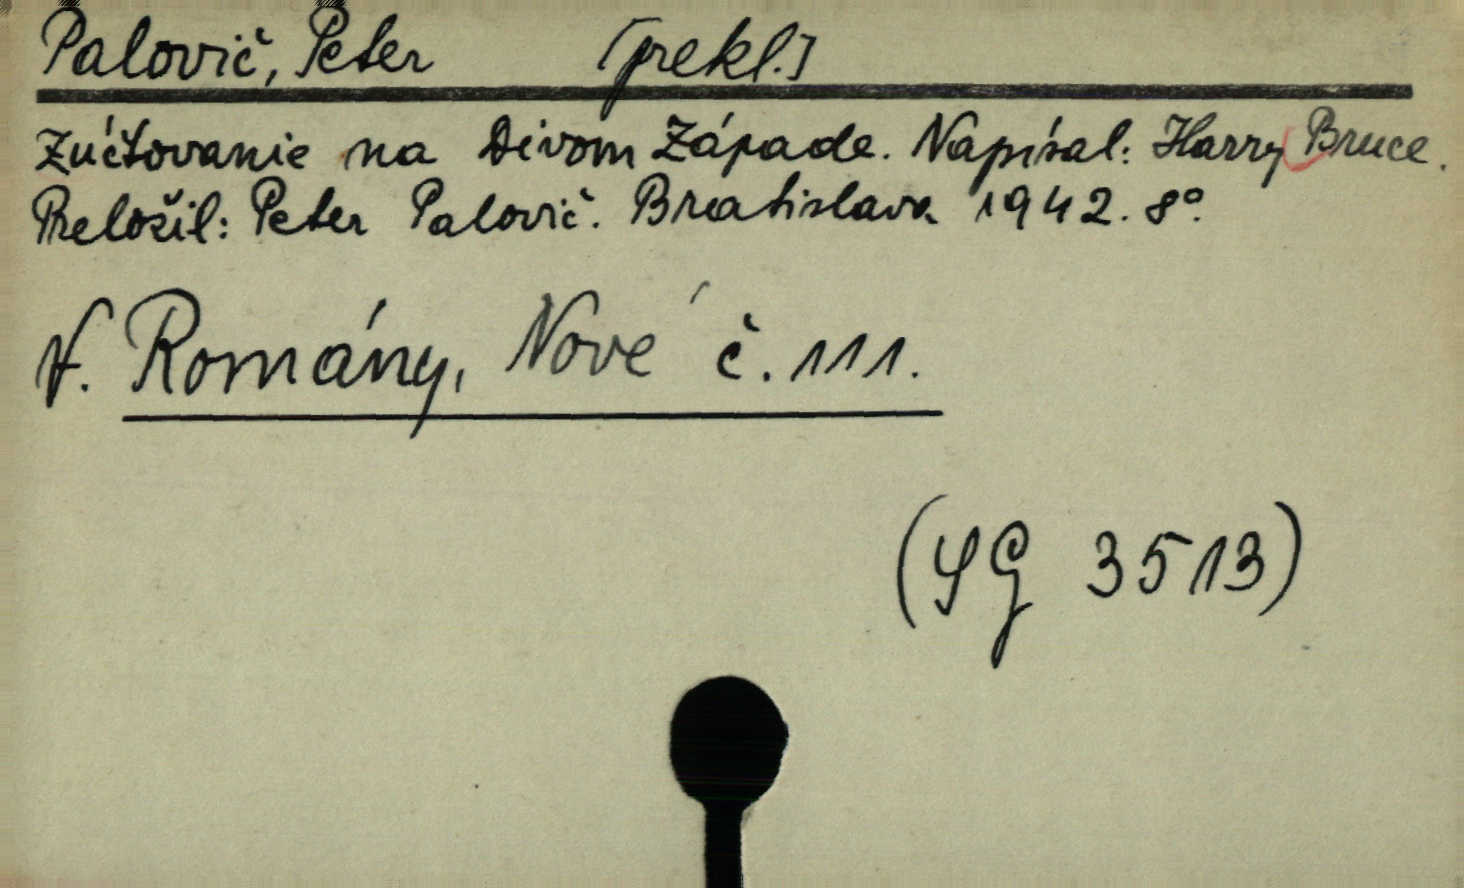 Palovič, Peter [prekl.]
Zúčtovanie na Divom Západe. Napísal: Harry Bruce.
Preložil: Peter Palovič. Bratislava 1942. 8°.
V. Romány, Nové č. 111.
(SG 3513)